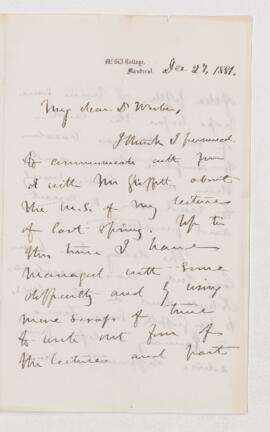 McGill College,
Montreal. Dec. 27, 1881.
My dear Dr
I think I promised
to communicate with you
or with Mr about
the M.S. of my lectures
of last Spring. Up to
this time I have
managed with some
difficulty and by using
mere scraps of time
to write out four of
the lectures and part